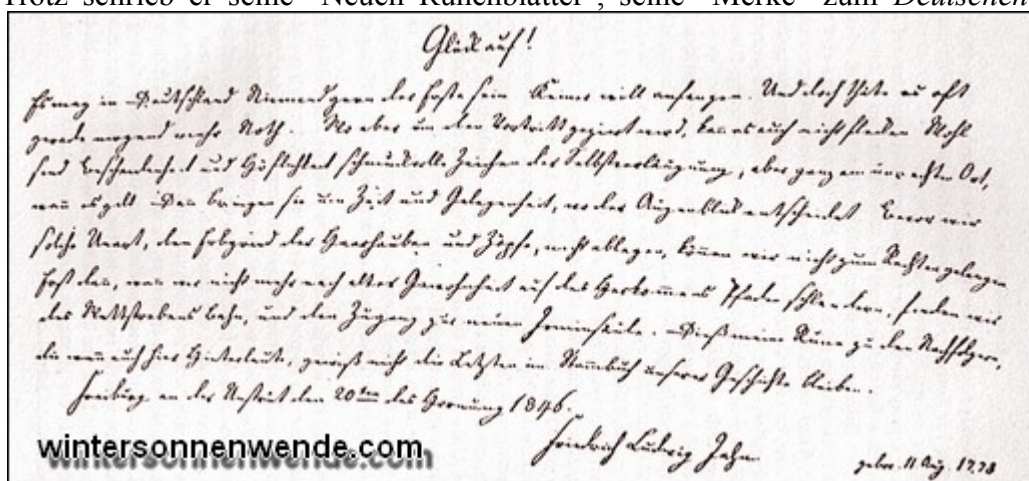 Trotz schrieb er seine "Neuen Runenblätter", seine "Merke" zum Deutschen
Glück auf!
Es mag in Deutschland Niemand gern der Erste sein. Keiner will anfangen. Und doch thäte es oft
gerade nirgend mehr Noth. Wo aber um den Vortritt wird, kann es auch nicht flecken. Wohl
sind Bescheidenheit und Höflichkeit schmuckvolle Zeichen der Selbstverläugnung, aber ganz am unrechten Ort,
wenn es gilt. Denn bringen sie um Zeit und Gelegenheit, wo der Augenblick entscheidet. Bevor wir
solche Unart, den der und Zöpfe, nicht ablegen, können wir nicht zum Rechten gelangen
Erst dann, wann wir nicht mehr nach alter Gewohnheit auf des Herkommens Pfaden schlendern, finden wir
des Wettstrebens Bahn, und den Zugang zur neuen Irminsäule. Dieß meine Rune zu den Nachfolgern,
die wenn auch hier Hinterleute, gewiß nicht die Letzten im Stammbuch unserer Geschichte bleiben.
Freiburg an der Unstrut den 20sten des Hornung 1846.
Friedrich Ludwig Jahn
gebor. 11 Aug. 1778
wintersonnenwende.com